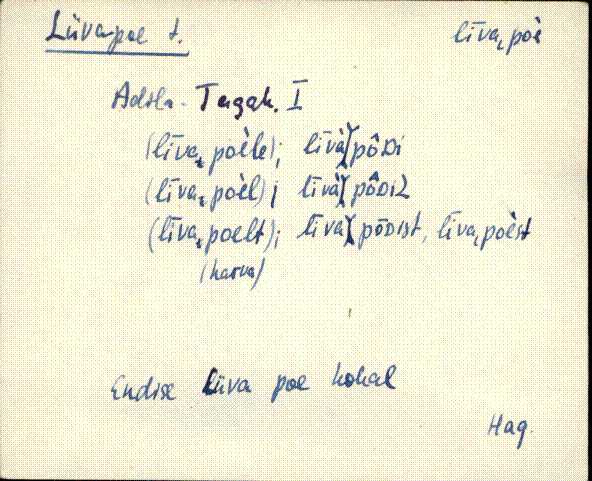 Liiva-poe t. līva‿poè
Adila- Tagak. I
(līva‿poèle); līvà)(pôDi
(līva‿poèl); līvà)(pôDiL
(līva‿poelt); līva)(pōDist, līva‿poèst
(harva)
Endise Liiva poe kohal
Hag.